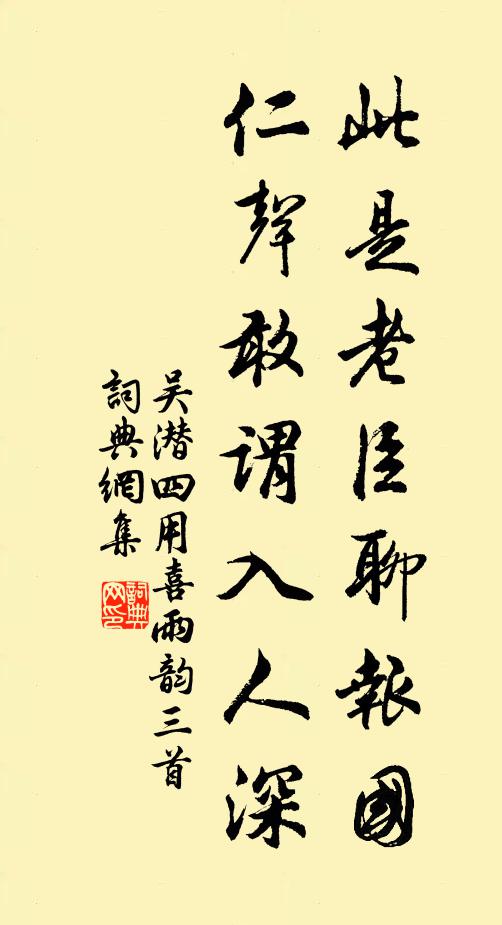 此是老臣聊報國
仁聲敢謂入人深
吴潜四用喜雨韵三首
詞典網集
詞典網印